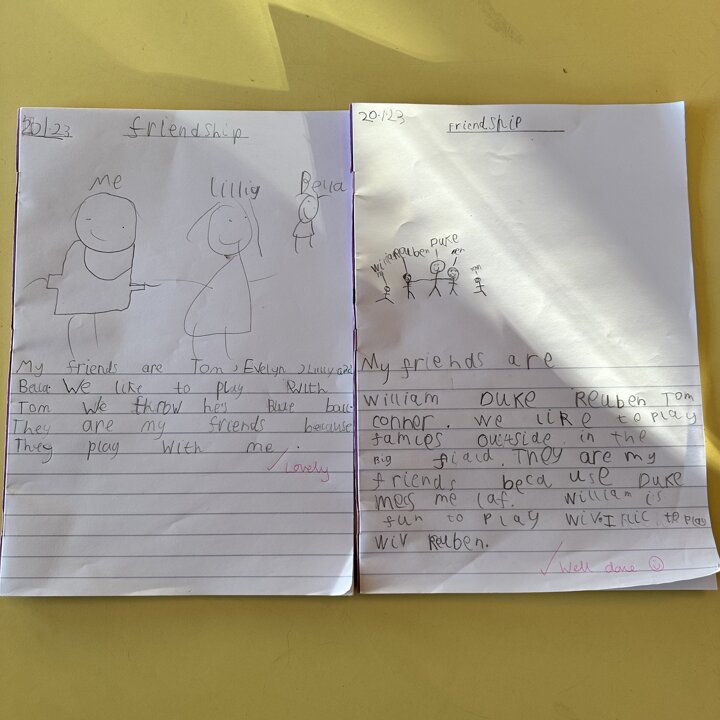 20.1.23
friendship
Me
Lillig
Bella
My friends are Tom, Evelyn, and
Bella. We like to play with
Tom we throw his Blue ball.
They are my friends because
They play with me.
✓ Lovely
20.1.23
friendship
William Reuben DUKE Me
My friends are
William DUKE REUBEN TOM
conner. we like to play
famies outside in the
Big fiald. They are my
friends beca use DUKE
mecs me laf. William is
fun to play wiv. I lic to play
wiv Reuben.
✓ Well done